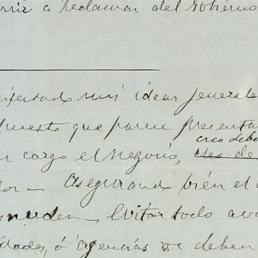 rrir a reclamar del Gobierno
ifestado mis ideas jenerale
puesto que parece presenta
creo debe
n cargo el negocio,
dor — Asegurando bién el
Evitar todo
dades, ó agencias de deben